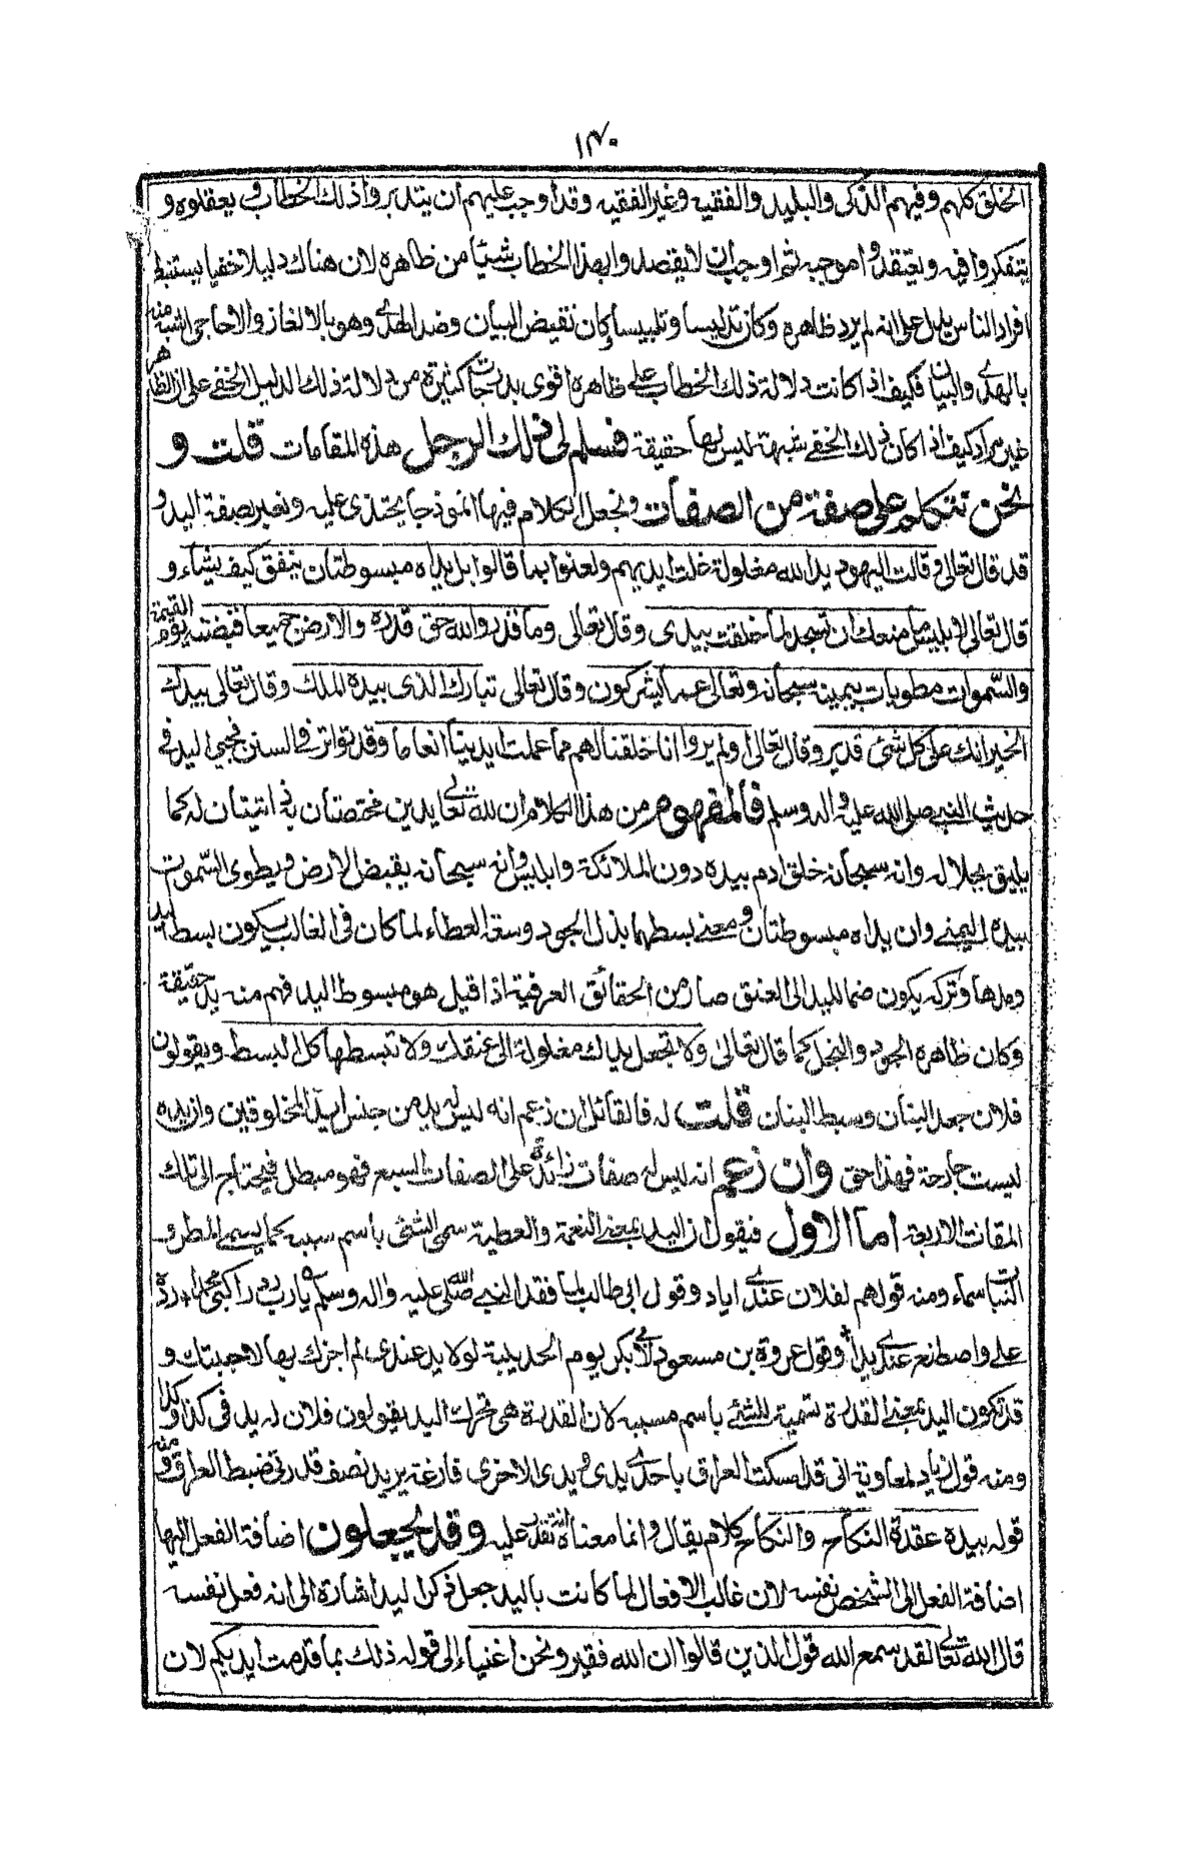 ١٣٠
الخلق كلهم وفيهم الذكى والبليد والفقيه وغير الفقيه وقد اوجب عليهم ان يتدبروا ذلك الخطاب ويعقلوه و
يتفكروا فيه ويعتقدوا موجبه ثم اوجب ان لا يقصدوا بهذا الخطاب شيئا من ظاهره لان هناك دليلا خفيا يستنبطه
افراد الناس يدل على انه لم يرد ظاهره وكان تدليسا وتلبيسا وكان نقيض البيان وضد الهدى وهو بالالغاز والاحاجى اشبه منه
بالهدى والبيان فكيف اذا كانت دلالة ذلك الخطاب على ظاهره اقوى بدرجات كثيرة من دلالة ذلك الدليل الخفى على ان الظاهر
غير مراد كيف اذا كان ذلك الخفى شبهة ليس لها حقيقة فسلم لى ذلك الرجل هذه المقامات قلت و
نحن نتكلم على صفة من الصفات ونجعل الكلام فيها انموذجا يحتذى عليه ونعبر بصفة اليد و
قد قال تعالى وقالت اليهود يد الله مغلولة غلت ايديهم ولعنوا بما قالوا بل يداه مبسوطتان ينفق كيف يشاء و
قال تعالى لابليس ما منعك ان تسجد لما خلقت بيدى وقال تعالى وما قدروا الله حق قدره والارض جميعا قبضته يوم القيمة
والسموات مطويات بيمينه سبحانه وتعالى عما يشركون وقال تعالى تبارك الذى بيده الملك وقال تعالى بيدك
الخير انك على كل شئ قدير وقال تعالى اولم يروا انا خلقنا لهم مما عملت ايدينا انعاما وقد تواتر فى السنن مجيئ اليد فى
حديث النبى صلى الله عليه واله وسلم فالمفهوم من هذا الكلام ان لله تعالى يدين مختصتان به ذاتيتان له كما
يليق بجلاله وانه سبحانه خلق ادم بيده دون الملائكة وابليس وانه سبحانه يقبض الارض ويطوى السموت
بيده اليمنى وان يداه مبسوطتان ومعنى بسطهما بذل الجود وسعة العطاء لما كان فى الغالب يكون بسط اليد
ومدها وتركه يكون ضما لليد الى العنق صار من الحقائق العرفية اذا قيل هو مبسوط اليد فهم منه يد حقيقة
وكان ظاهره الجود والبخل كما قال تعالى ولا تجعل يدك مغلولة الى عنقك ولا تبسطها كل البسط ويقولون
فلان جعد البنان وسبط البنان قلت له فالقائل ان زعم انه ليس له يد من جنس ايد المخلوقين وان يده
ليست جارحة فهذا حق وان زعم انه ليس له صفات زائدة على الصفات السبع فهو مبطل فيحتاج الى تلك
المقامات الاربعة اما الاول فيقول ان اليد بمعنى النعمة والعطية سمى الشئ باسم سببه كما يسمى المطر و
النبات سماء ومنه قولهم لفلان عندى اياد وقول ابى طالب لما فقد النبى صلى الله عليه واله وسلم يا رب رد راكبى محمدا رده
على واصطنع عندى يدا وقول عروة بن مسعود لابى بكر يوم الحديبية لولا يد عندى لم اجزك بها لاجبتك و
قد تكون اليد بمعنى القدرة تسمية للشئ باسم مسببه لان القدرة هى تحرك اليد يقولون فلان له يد فى كذا وكذا
ومنه قول زياد لمعاوية انى قد مسكت العراق باحدى يدى ويدى الاخرى فارغة يريد نصف قدرتى ضبط العراق ومنه
قوله بيده عقدة النكاح والنكاح كلام يقال وانما معناه انه مقتدر عليه وقد يجعلون اضافة الفعل اليها
اضافة الفعل الى الشخص نفسه لان غالب الافعال لما كانت باليد جعل ذكر اليد اشارة الى انه فعل نفسه
قال الله تعالى لقد سمع الله قول الذين قالوا ان الله فقير ونحن اغنياء الى قوله ذلك بما قدمت ايديكم لان